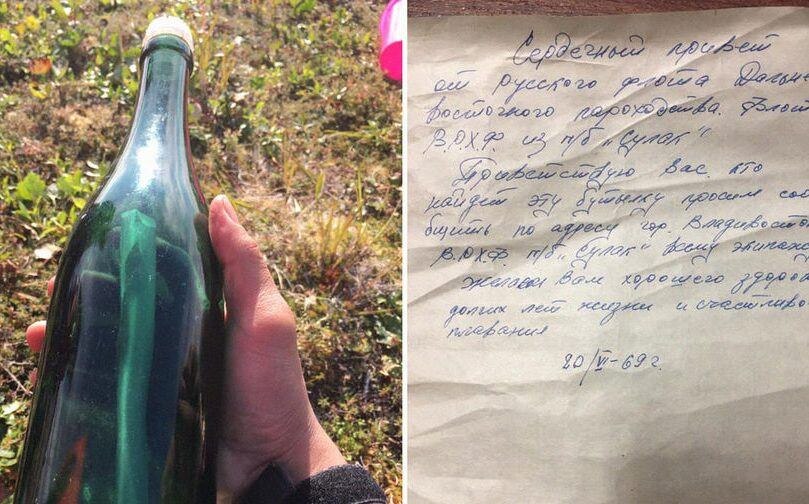 Сердечный привет
от русского флота Дальне
восточного пароходства.
В.О.Х.Ф. из п/б „Сулак"
Приветствую Вас, кто
найдет эту бутылку просим соо
бщить по адресу гор. Владивосток
В.О.Х.Ф п/б „Сулак" всему экипажу
желаем Вам хорошего здоровь
долгих лет жизни и счастливого
плавания
20/VI-69 г.